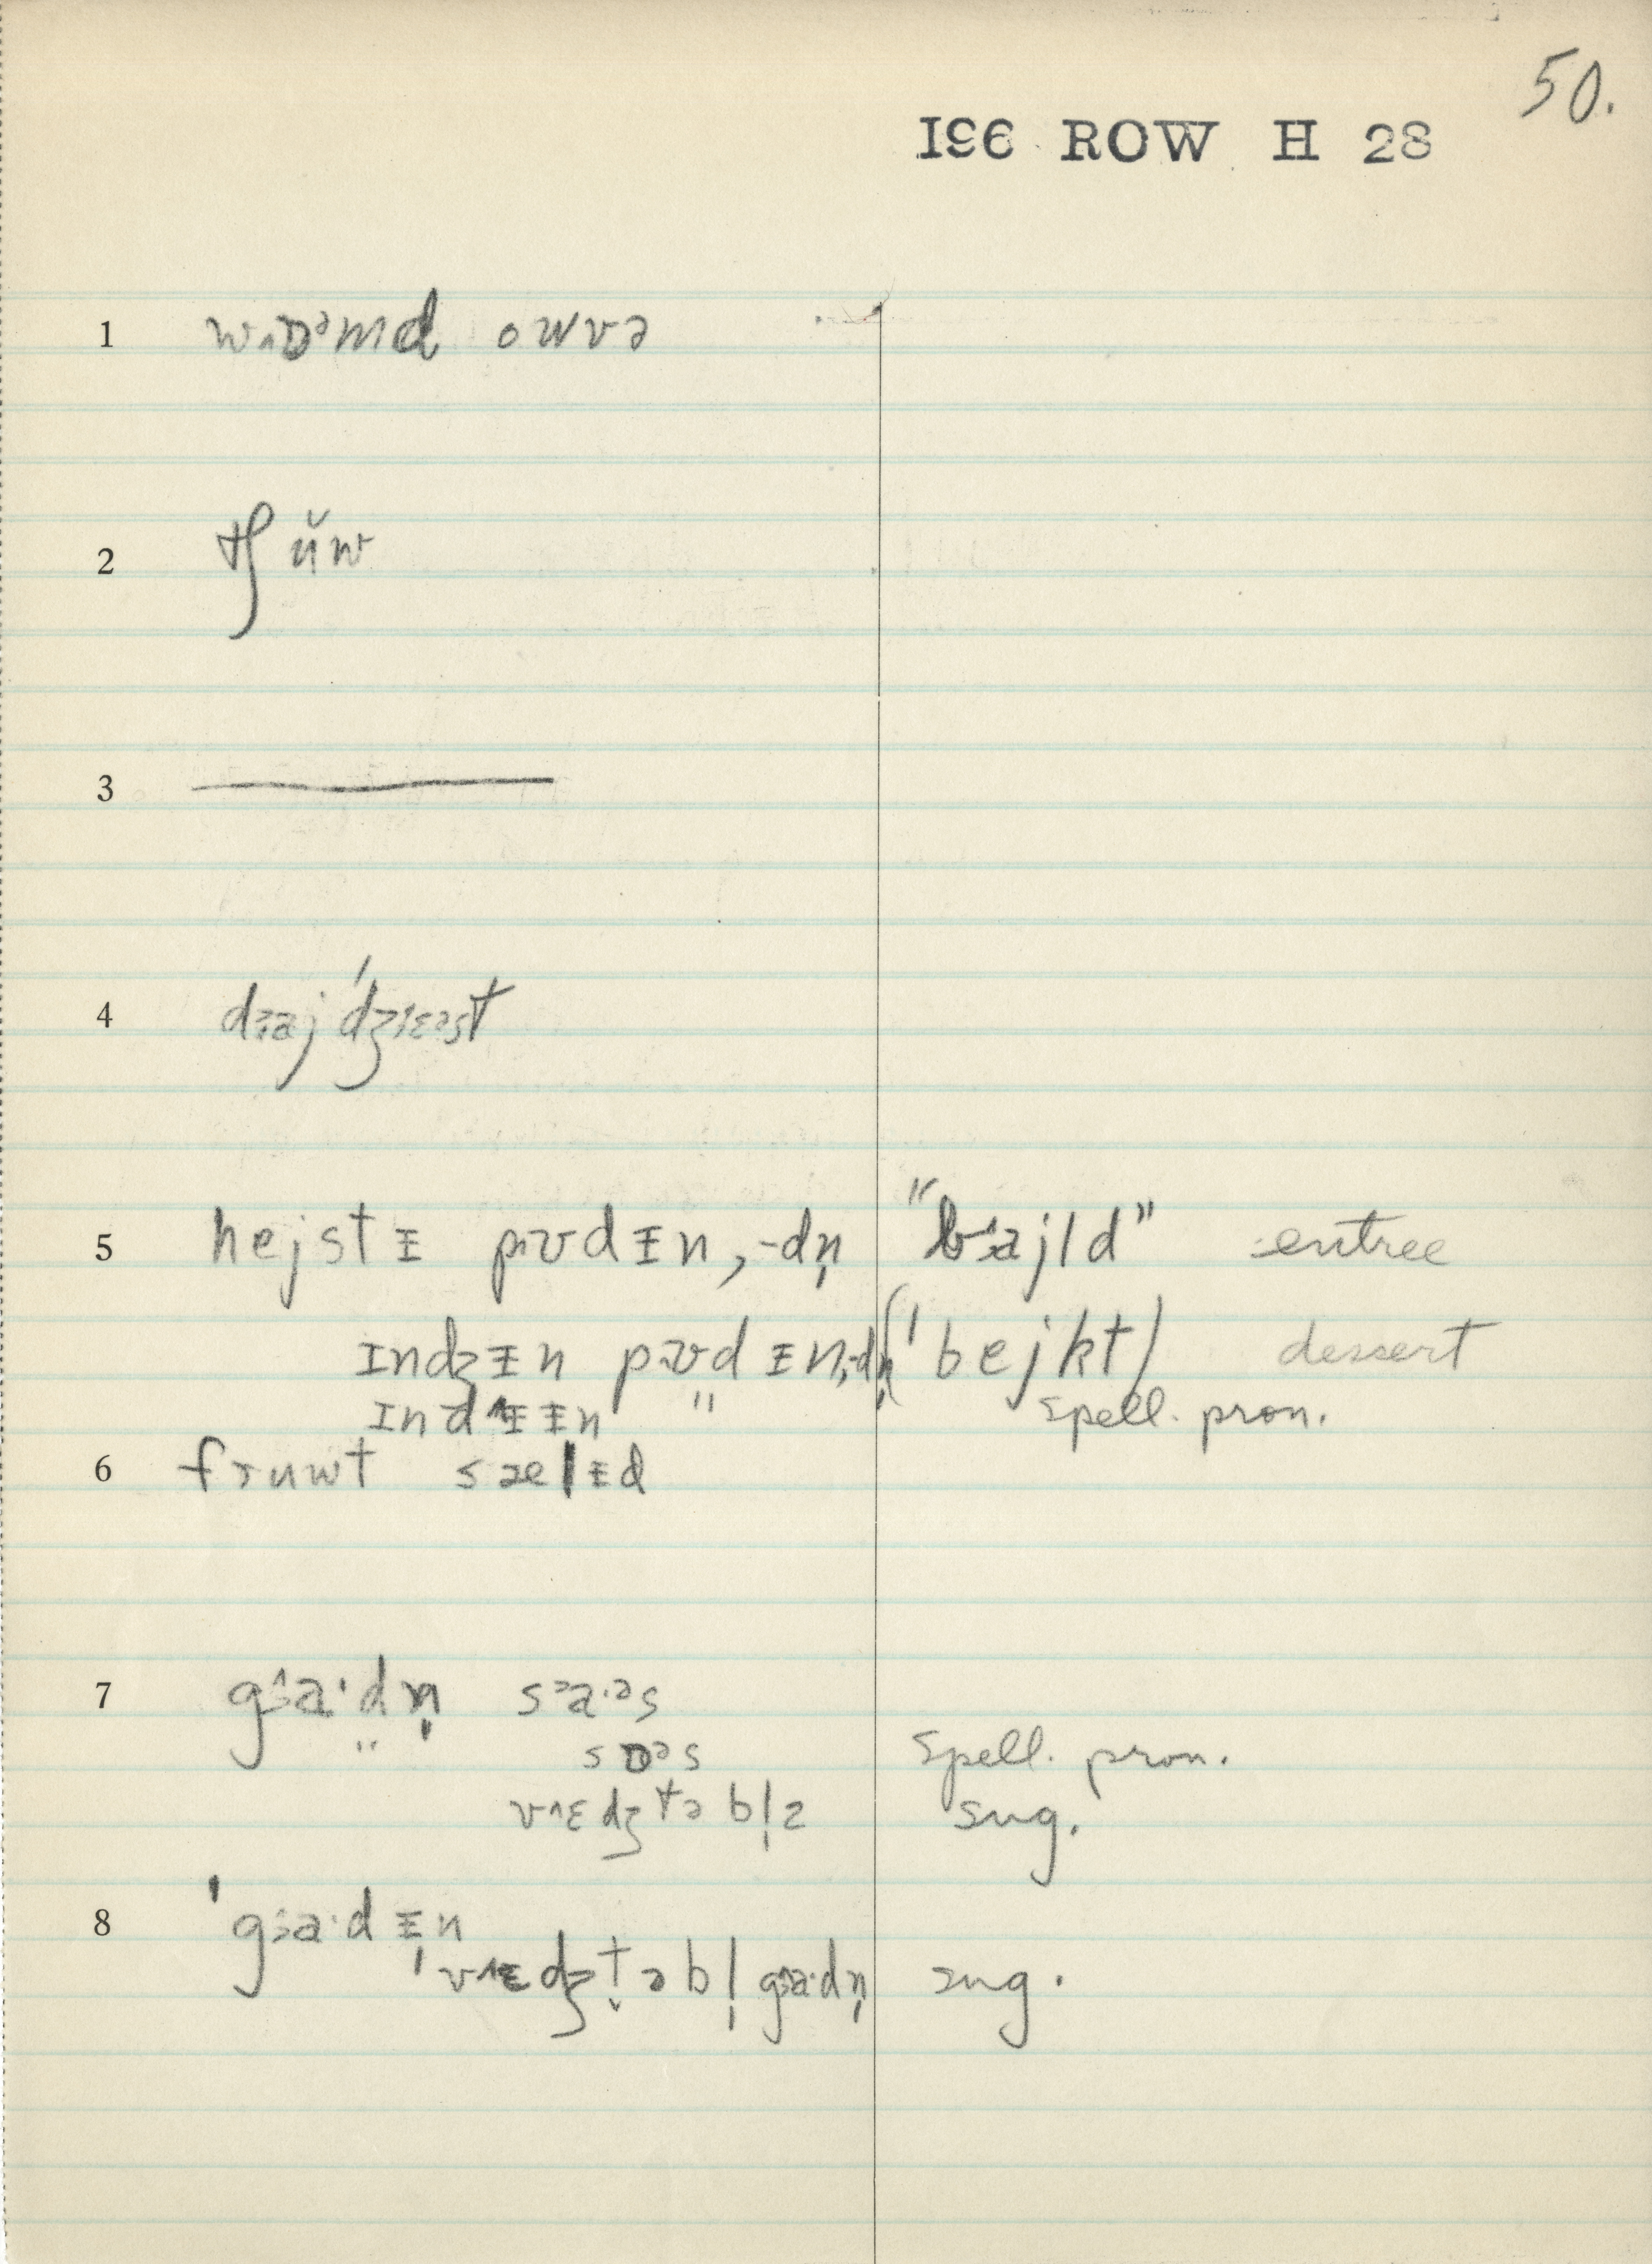 50.
I96 ROW H 28
1 w˄ɒᵊmd owvə
2 tʃŭw
3
4 dɹaj ˈdʒɪɛəst
5 hejstᵻ pʊdᵻn, -dn̩ "bɹ˄ajld" entree
ɪndʒᵻn pʊdᵻn, -dn̩ (ˈbejkt) dessert
ɪndᵻᵻn " spell. pron.
6 fɹuwt sælᵻd
7 gɜa·dn̩ sᵊa·ᵊs
" sɒᵊs spell. pron.
v˄ɛdʒtəbl̩z sug.
8 ˈgɜa·dᵻn
ˈv˄ɛdʒtəbl̩ gɜa·dn̩ sug.